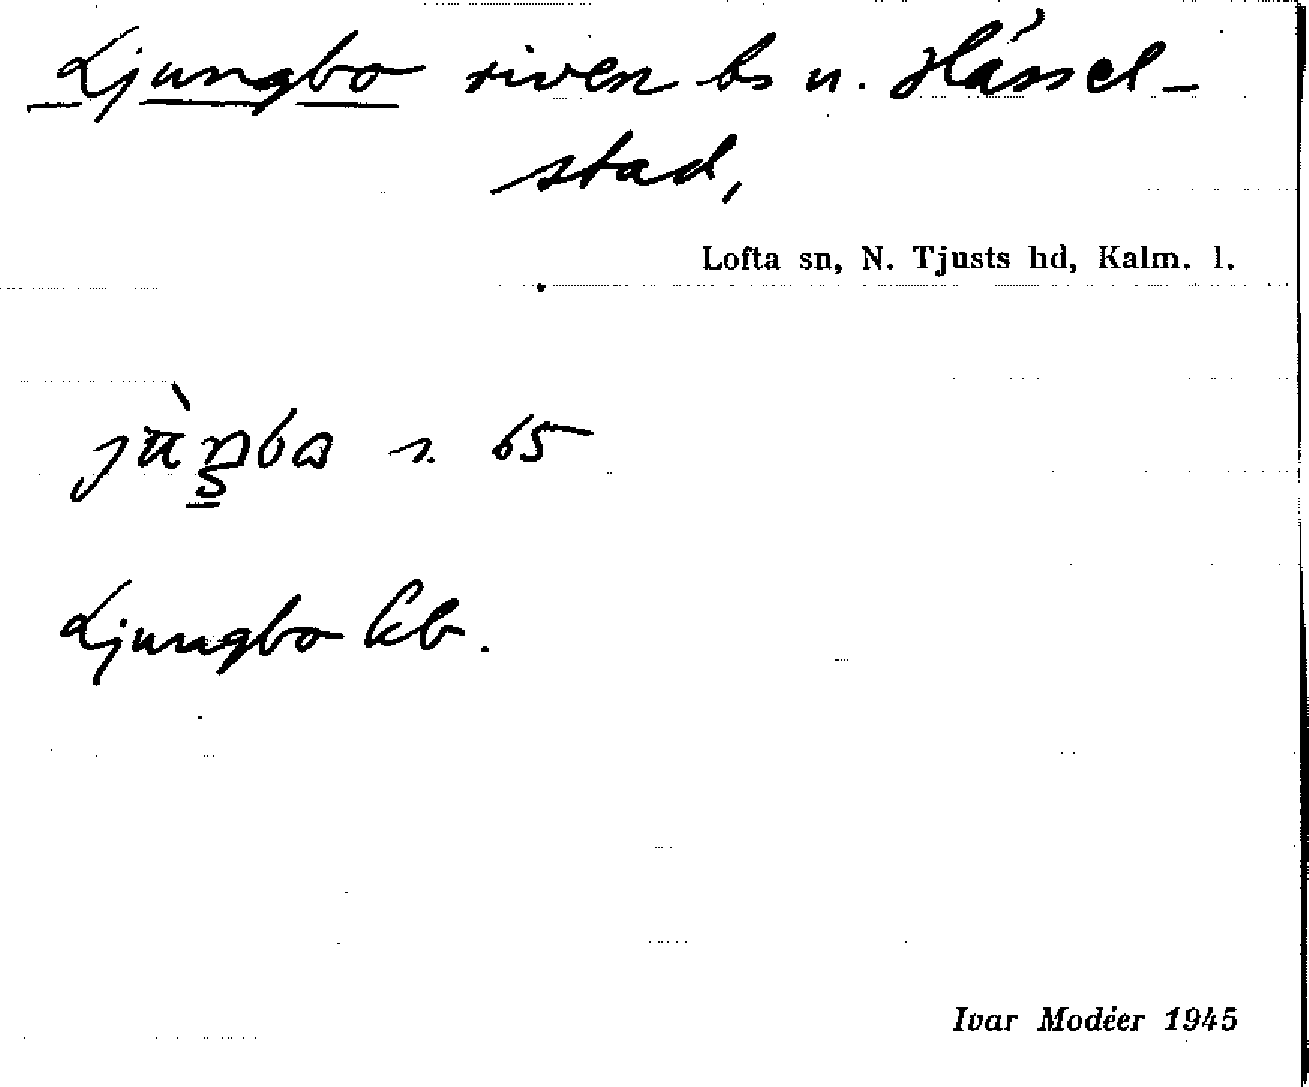 Ljungbo riven bs u. Hässel-
stad,
Lofta sn, N. Tjusts hd, Kalm. l.
s. 65
Ljungbo kb.
Ivar Modéer 1945